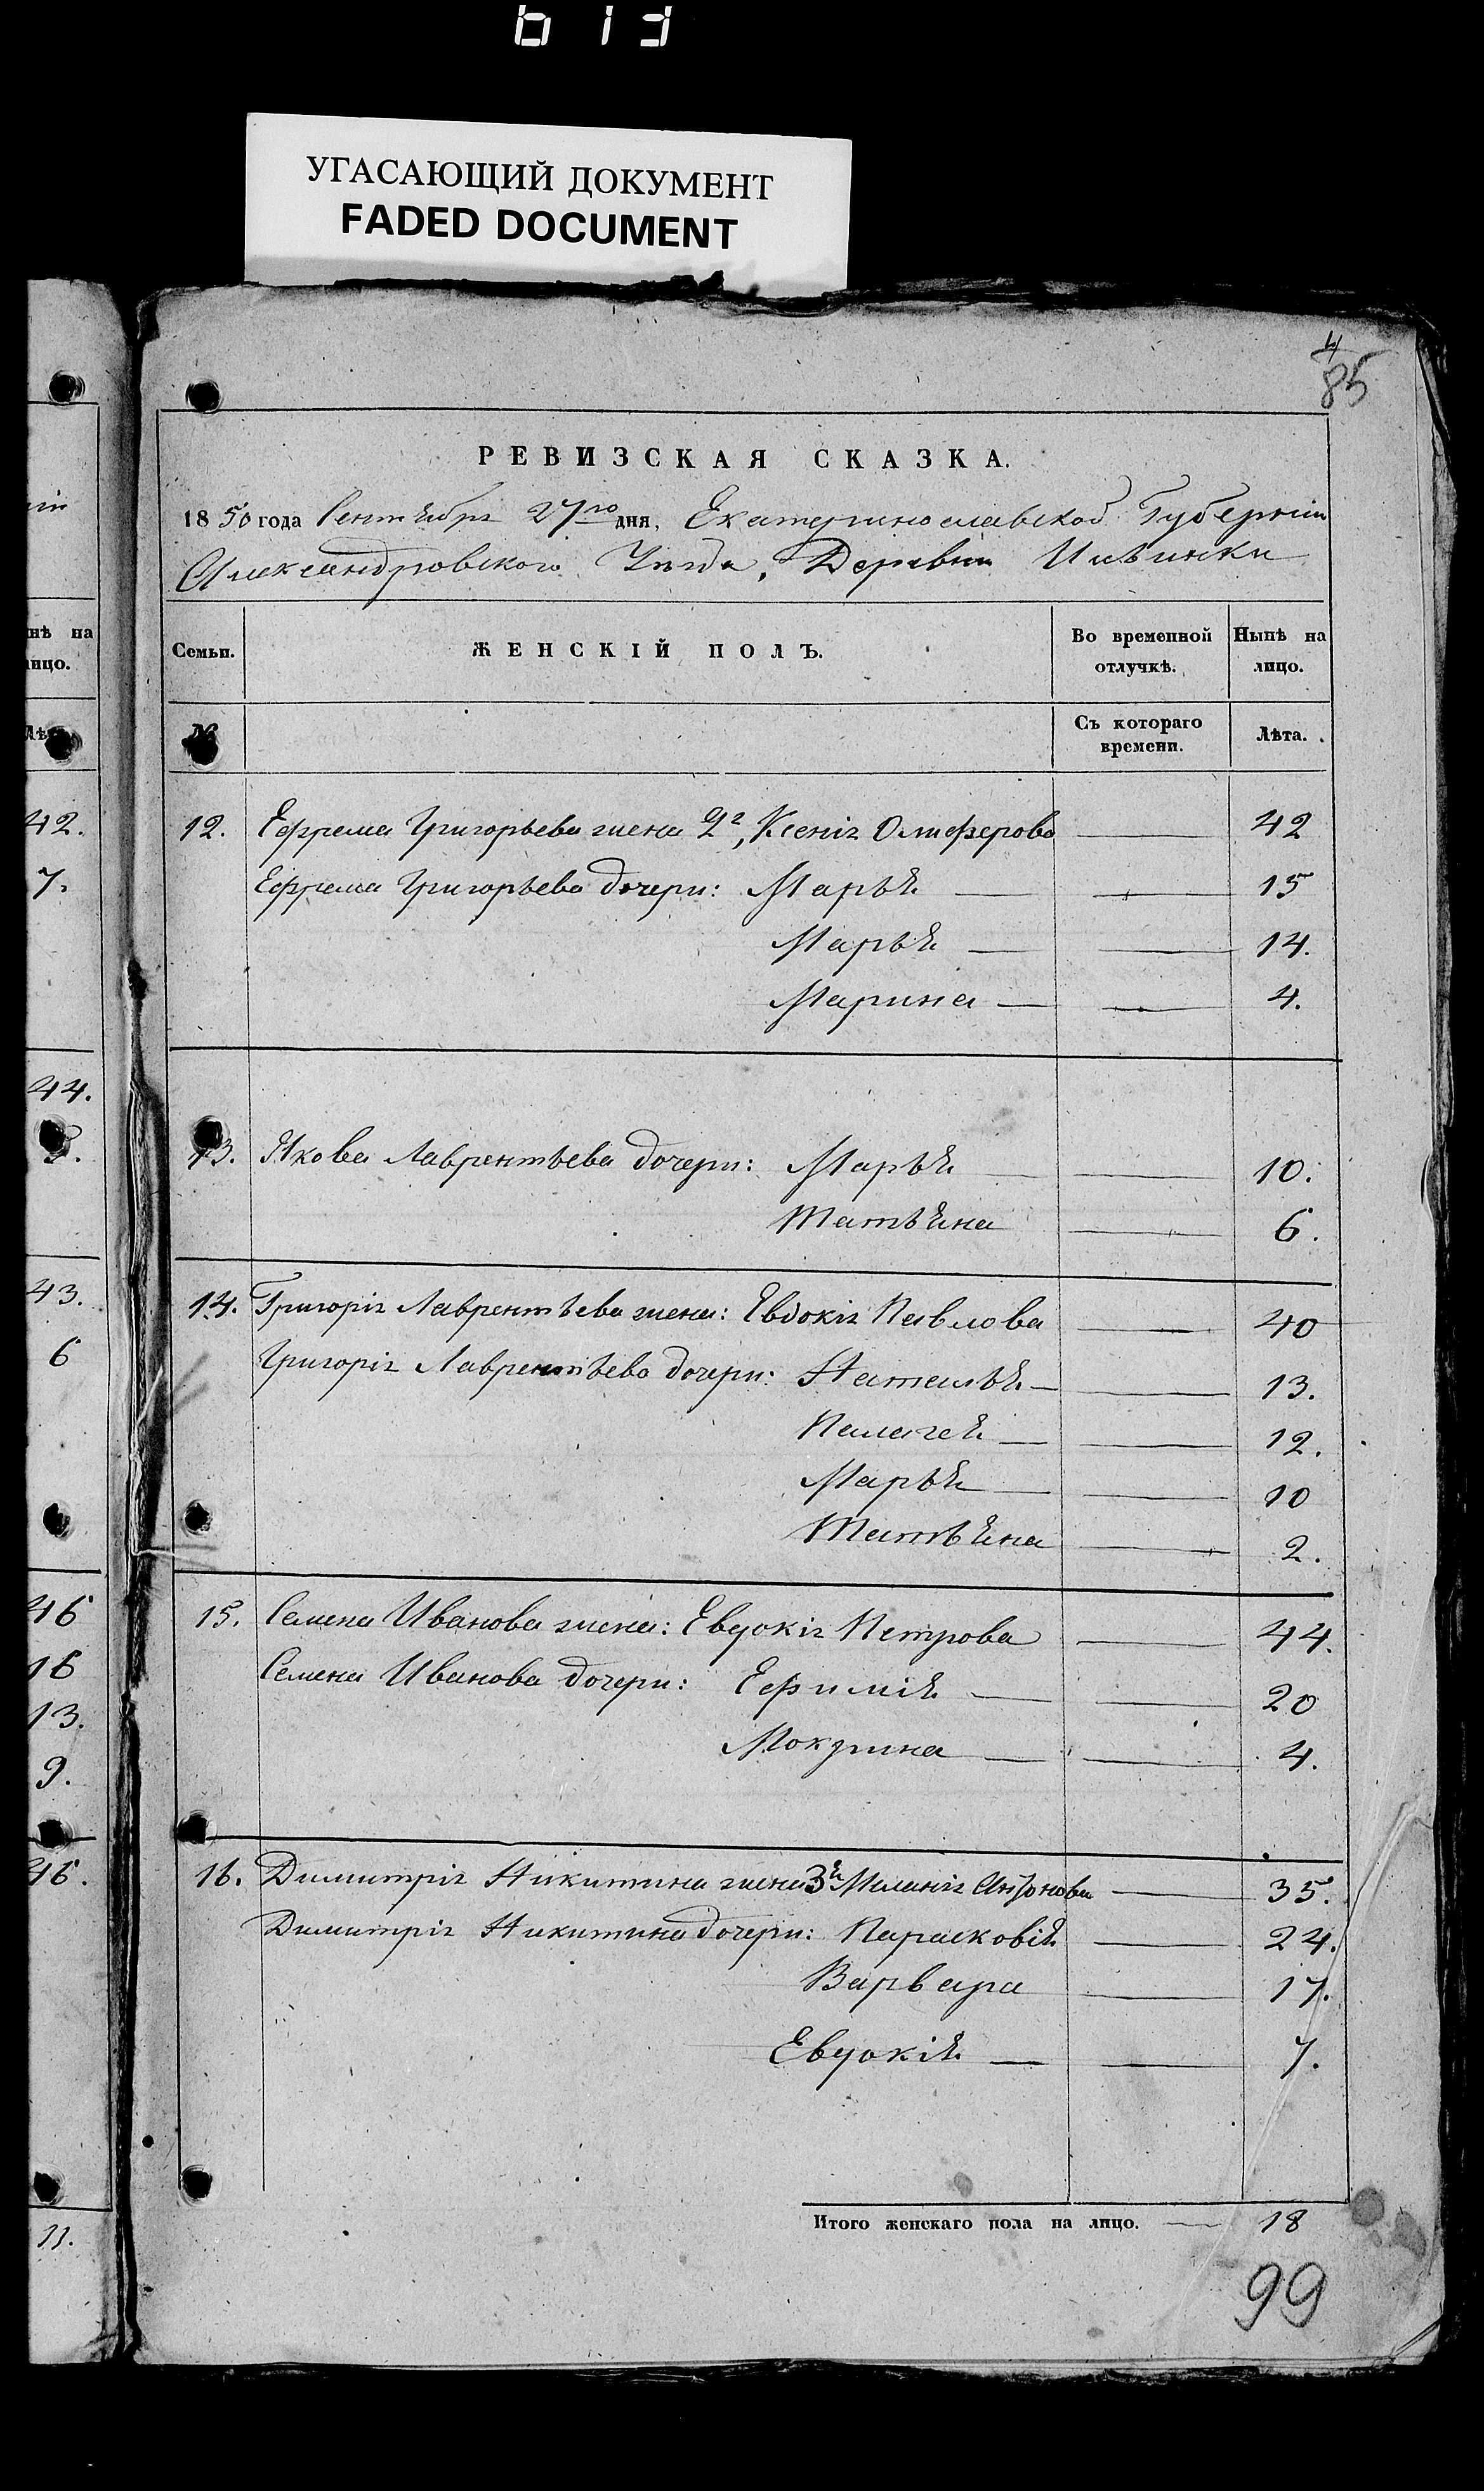 613
УГАСАЮЩИЙ ДОКУМЕНТ
FADED DOCUMENT
4
85
РЕВИЗСКАЯ СКАЗКА.
1850 года Сентября 27го дня, Екатеринославской Губернии
Александровского Уезда, Деревни Ильинки
нѣ на
лицо.
Семьи. ЖЕНСКІЙ ПОЛЪ. Во временной отлучкѣ. Нынѣ на лицо.
№ Съ котораго времени. Лѣта.
42. 12. Ефрема Григорьева жена 2я, Ксенія Олиферова — 42
7. Ефрема Григорьева дочери: Марья — — 15
Марья — — 14.
Марина — — 4.
44.
13. Якова Лаврентьева дочери: Марья — 10.
Татьяна — 6.
43. 14. Григорія Лаврентьева жена: Евдокія Павлова — 40
6 Григорія Лаврентьева дочери: Наталья — — 13.
Палагея — — 12.
Марья — — 10
Татьяна — 2.
46 15. Семена Иванова жена: Евдокія Петрова — 44.
16 Семена Иванова дочери: Ефимія — — 20
13. Мокрина — — 4.
9.
46. 16. Димитрія Никитина жена 3я Меланія Антонова — 35.
Димитрія Никитина дочери: Парасковія — 24.
Варвара — 17.
Евдокія — — 7.
11. Итого женскаго пола на лицо. — 18
99